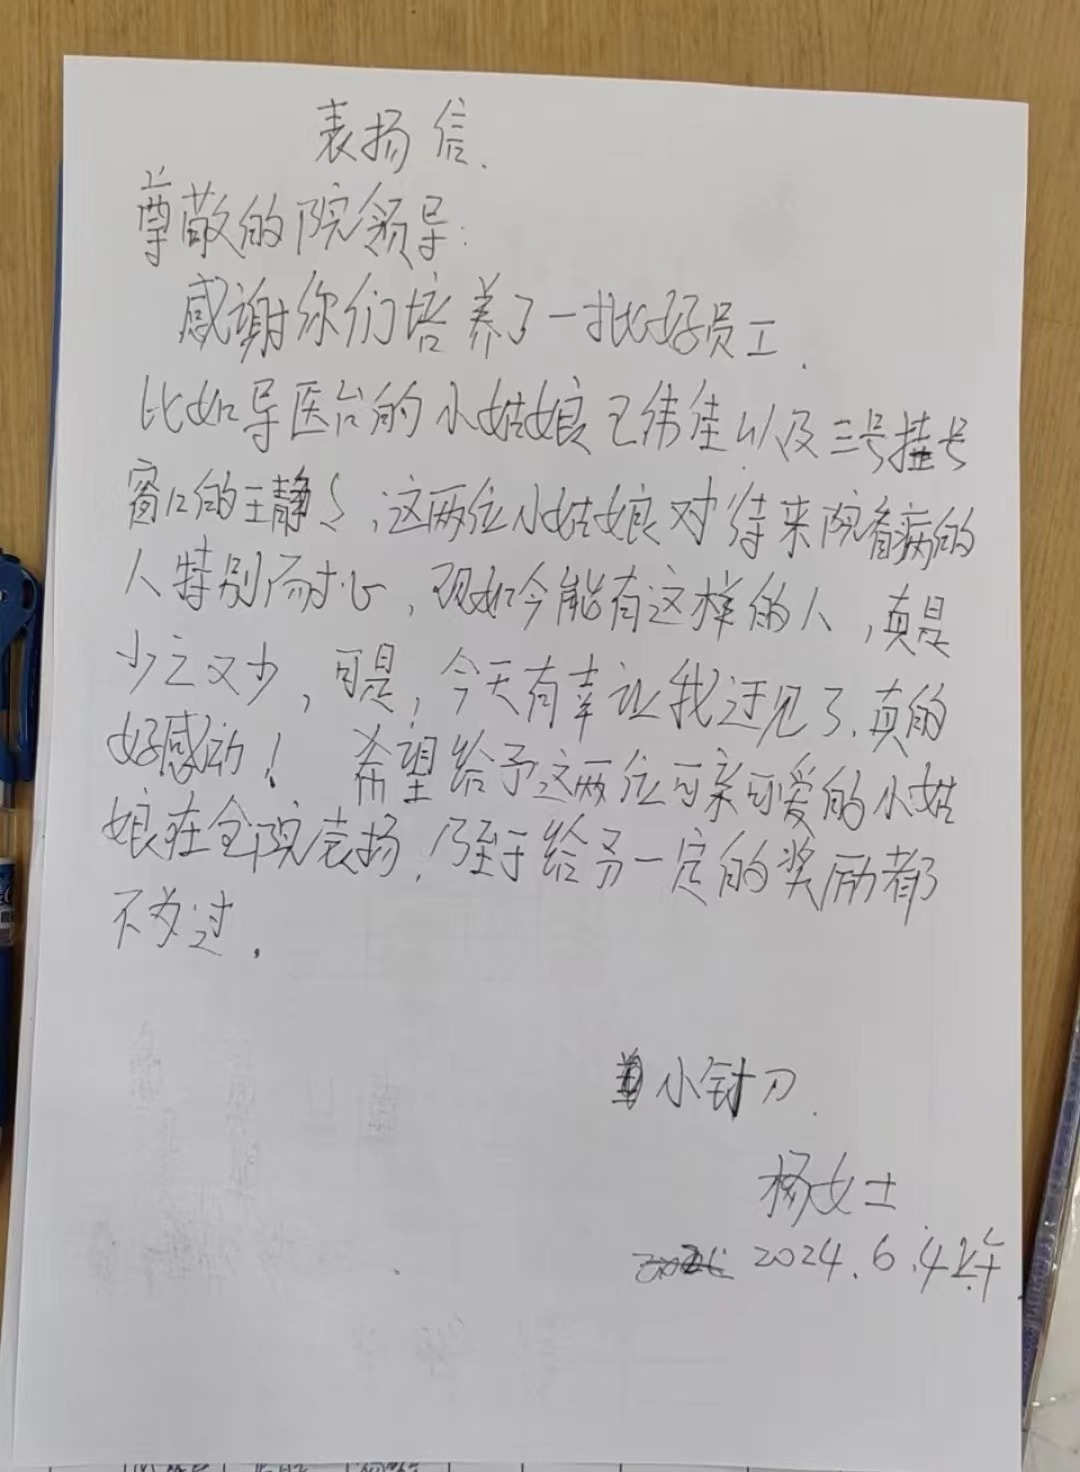 表扬信.
尊敬的院领导:
感谢你们培养了一批好员工.
比如导医台的小姑娘王伟佳以及三号挂号
窗口的王静〻,这两位小姑娘对待来院看病的
人特别耐心,现如今能有这样的人,真是
少之又少,可是,今天有幸让我迂见了.真的
好感动! 希望给予这两位可亲可爱的小姑
娘在全院表扬,乃至于给予一定的奖励都
不为过.
小针刀.
杨女士
2024.6.4上午